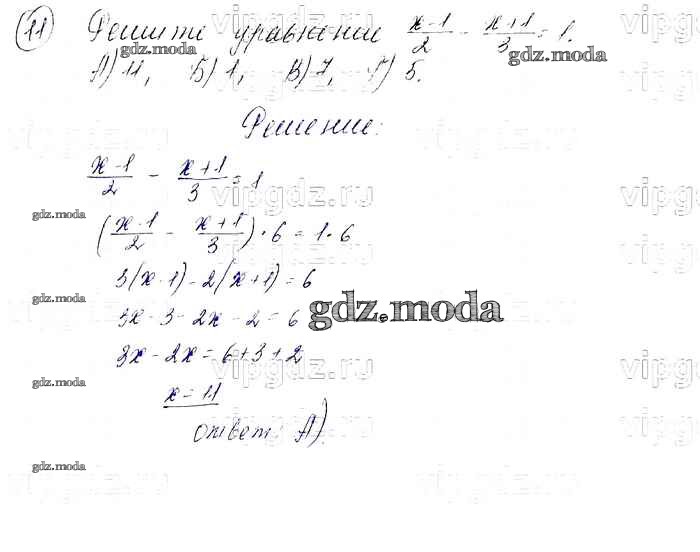 11 Решите уравнение (x-1)/2 - (x+1)/3 = 1.
А) 11, Б) 1, В) 7, Г) 5.
Решение:
(x-1)/2 - (x+1)/3 = 1
((x-1)/2 - (x+1)/3) · 6 = 1 · 6
3(x-1) - 2(x+1) = 6
3x - 3 - 2x - 2 = 6
3x - 2x = 6 + 3 + 2
x = 11
ответ: А).
gdz.moda
gdz.moda
gdz.moda
gdz.moda
gdz.moda
gdz.moda
gdz.moda
vipgdz.ru
vipgdz.ru
vipgdz.ru
vipgdz.ru
vipgdz.ru